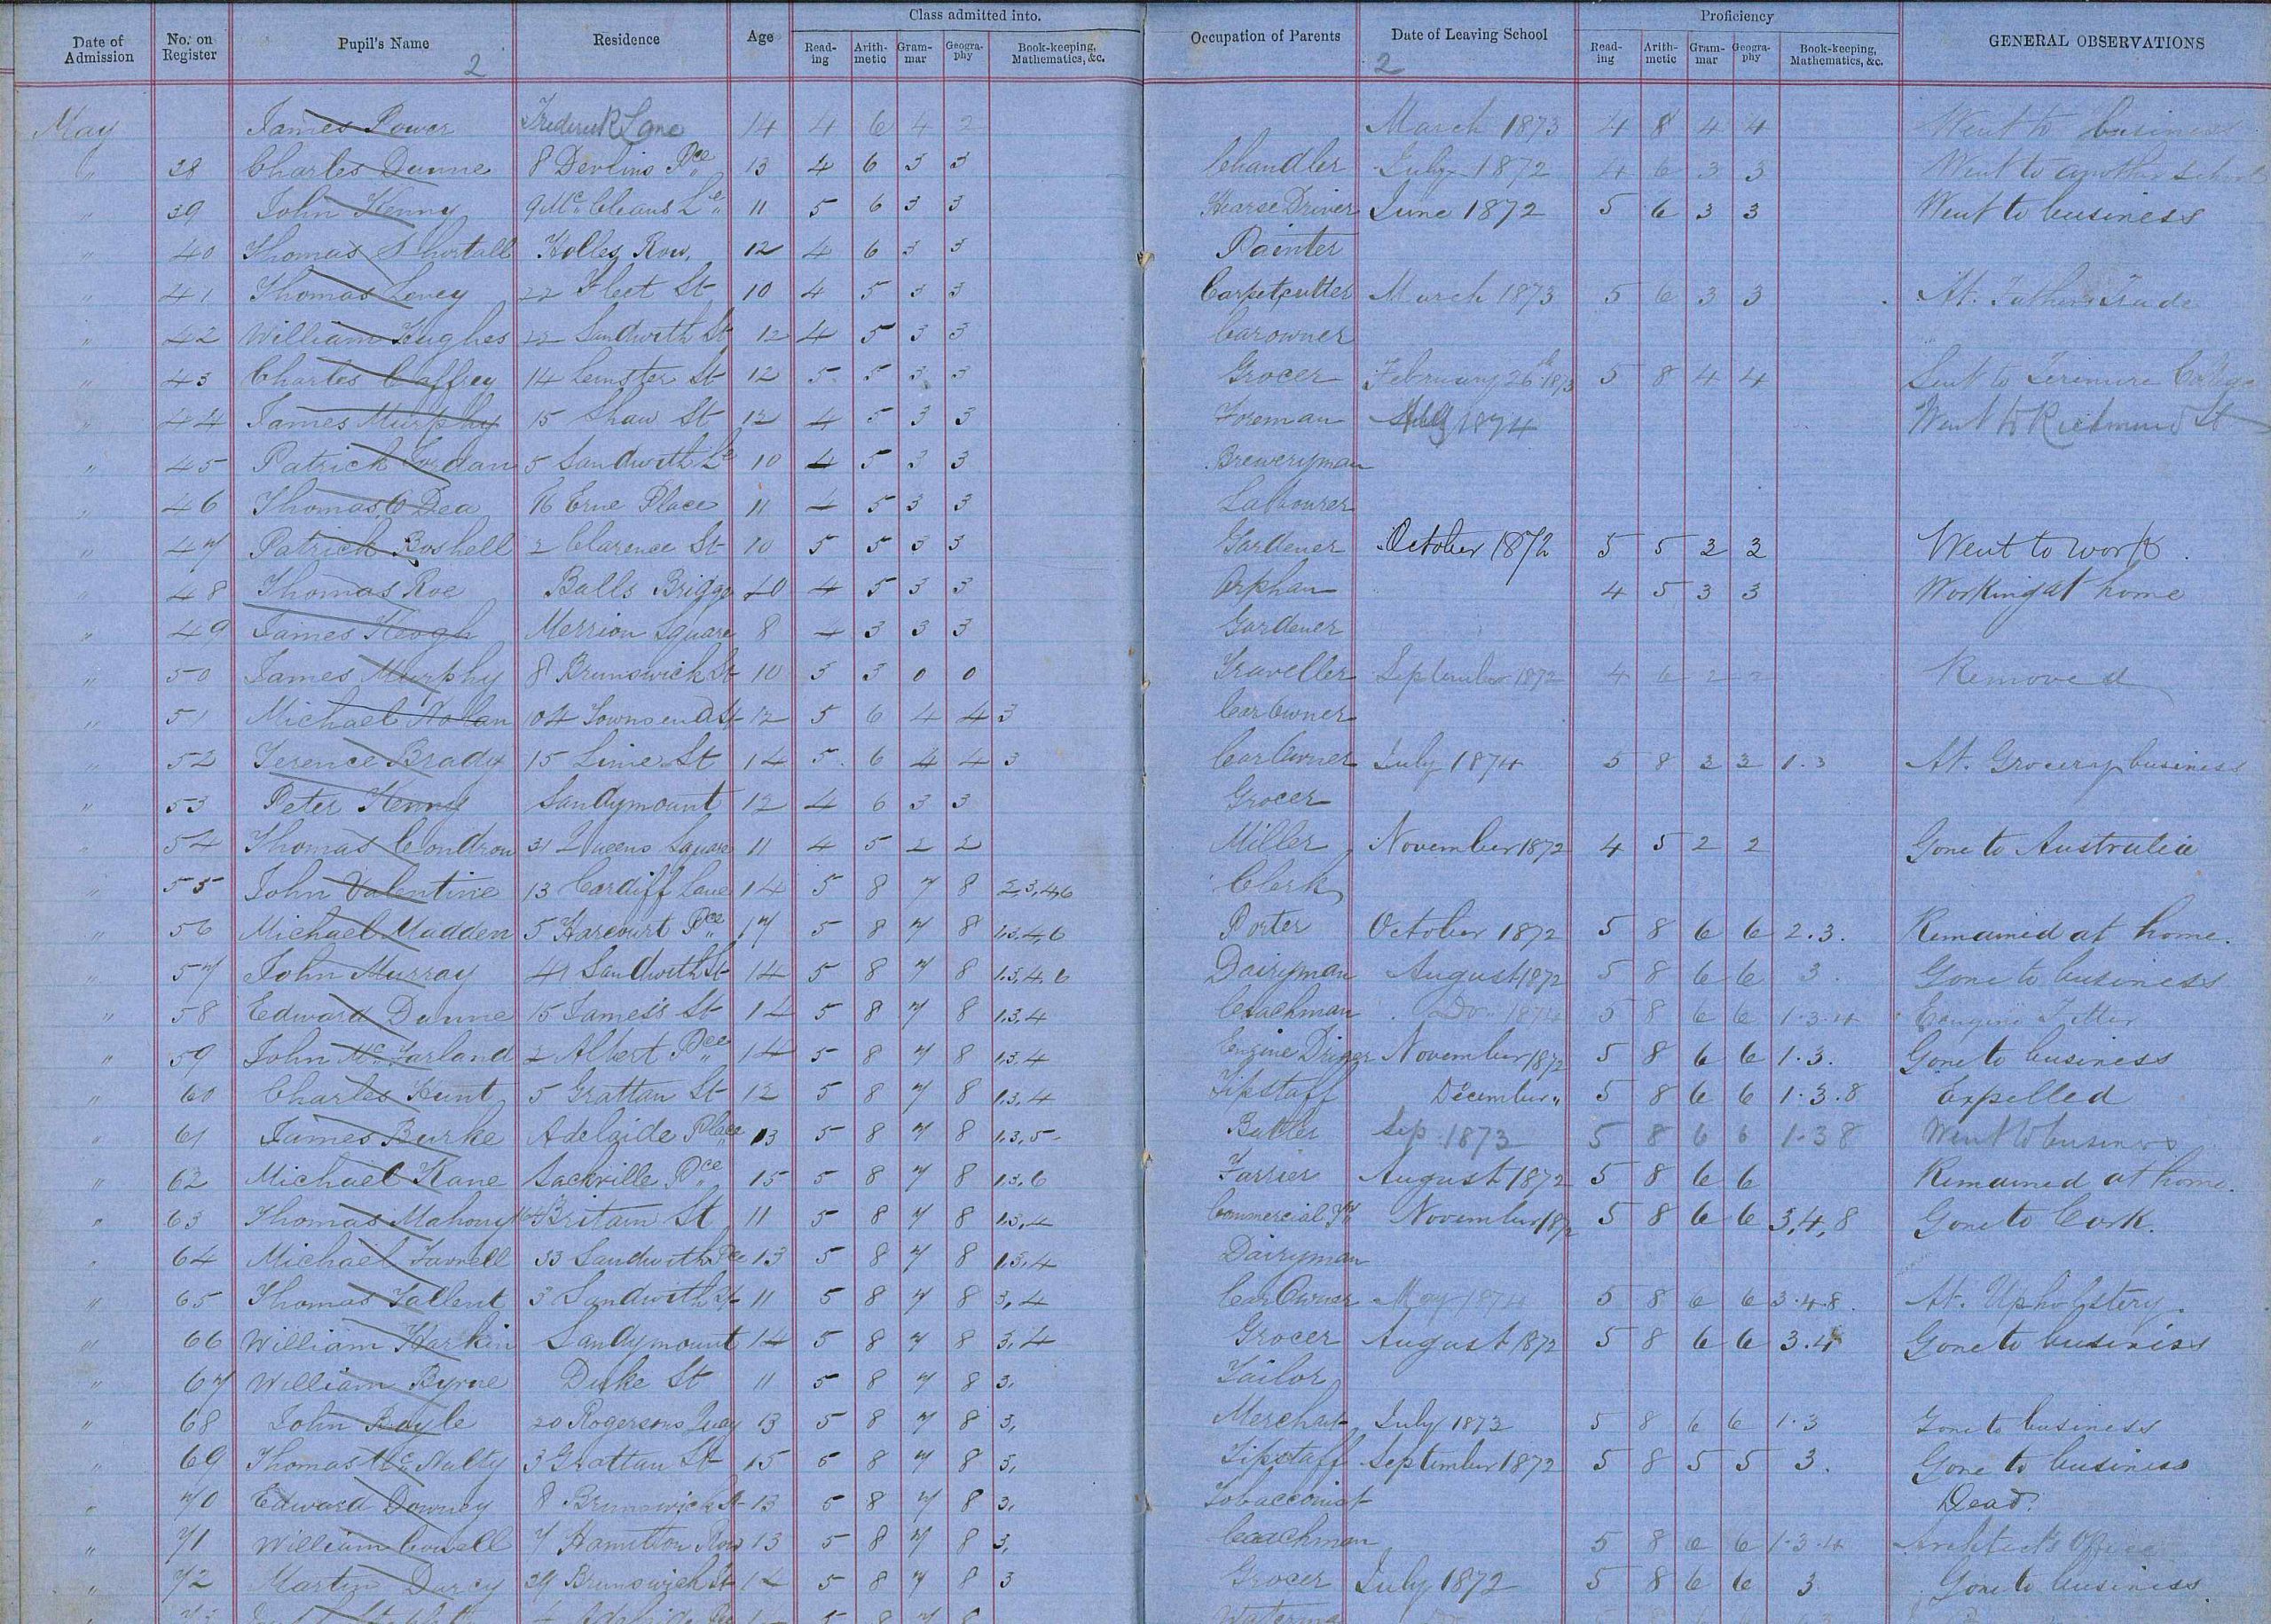 Class admitted into. Proficiency
Date of Admission No. on Register Pupil's Name Residence Age Read-ing Arith-metic Gram-mar Geogra-phy Book-keeping, Mathematics, &c. Occupation of Parents Date of Leaving School Read-ing Arith-metic Gram-mar Geogra-phy Book-keeping, Mathematics, &c. GENERAL OBSERVATIONS
2 2
May James Power Frederick Lane 14 4 6 4 2 March 1873 4 8 4 4 Went to business
" 38 Charles Dunne 8 Devlins Pce 13 4 6 3 3 Chandler July 1872 4 6 3 3 Went to another School
" 39 John Kenny 9 Mc Cleans Le 11 5 6 3 3 Hearse Driver June 1872 5 6 3 3 Went to business
" 40 Thomas Shortall Holles Row, 12 4 6 3 3 Painter
" 41 Thomas Levey 22 Fleet St 10 4 5 3 3 Carpetcutter March 1873 5 6 3 3 At. Fathers Trade
" 42 William Hughes 22 Sandwith St 12 4 5 3 3 Carowner
" 43 Charles Caffrey 14 Leinster St 12 5 5 3 3 Grocer February 26th 1873 5 8 4 4 Sent to Terenure College
" 44 James Murphy 15 Shaw St 12 4 5 3 3 Foreman 1874 Went to Richmond St
" 45 Patrick Jordan 5 Sandwith Le 10 4 5 3 3 Breweryman
" 46 Thomas O Dea 16 Erne Place 11 4 5 3 3 Labourer
" 47 Patrick Boshell 2 Clarence St 10 5 5 3 3 Gardener October 1872 5 5 2 2 Went to work.
" 48 Thomas Roe Balls Briggs 10 4 5 3 3 Orphan 4 5 3 3 Working at home
" 49 James Keogh Merrion Square 8 4 3 3 3 Gardener
" 50 James Murphy 8 Brunswick St 10 3 3 0 0 Traveller September 1872 4 6 2 2 Removed
" 51 Michael Nolan 104 Townsend St 12 5 6 4 4 3 Car Owner
" 52 Terence Brady 15 Lime St 14 5 6 4 4 3 Car Owner July 1874 5 8 2 2 1.3 At. Grocery business
" 53 Peter Kenny Sandymount 12 4 6 3 3 Grocer
" 54 Thomas Condron 31 Queens Square 11 4 5 2 2 Miller November 1872 4 5 2 2 Gone to Australia
" 55 John Valentine 13 Cardiff Lane 14 5 8 7 8 2,3,4,6 Clerk
" 56 Michael Madden 5 Harcourt Pce 17 5 8 7 8 1.3.4,6 Porter October 1872 5 8 6 6 2.3. Remained at home.
" 57 John Murray 41 Sandwith St 14 5 8 7 8 1.3,4,6 Dairyman August 1872 5 8 6 6 3. Gone to business
" 58 Edward Dunne 15 James's St 14 5 8 7 8 1.3,4 Coachman Do 1874 5 8 6 6 1.3.4 Engine Fitter
" 59 John Mc Farland 2 Albert Pce 14 5 8 7 8 1.3.4 Engine Driver November 1872 5 8 6 6 1.3. Gone to business
" 60 Charles Hunt 5 Grattan St 12 5 8 7 8 1.3.4 Tipstaff December " 5 8 6 6 1.3.8 Expelled
" 61 James Burke Adelaide Place 13 5 8 7 8 1.3,5 Butler Sep 1873 5 8 6 6 1.3 8 Went to business
" 62 Michael Kane Sackville Pce 15 5 8 7 8 1.3.6 Farrier August 1872 5 8 6 6 Remained at home.
" 63 Thomas Mahony Britain St 11 5 8 7 8 1.3,4 Commercial November 1872 5 8 6 6 3,4,8 Gone to Cork.
" 64 Michael Farrell 33 Sandwith Pce 13 5 8 7 8 1.3,4 Dairyman
" 65 Thomas Tallent 3 Sandwith St 11 5 8 7 8 3,4 Car Owner May 1874 5 8 6 6 3.4.8. At. Upholstery.
" 66 William Harkin Sandymount 14 5 8 7 8 3,4 Grocer August 1872 5 8 6 6 3.4 Gone to business
" 67 William Byrne Duke St 11 5 8 7 8 3, Tailor
" 68 John Boyle 20 Rogersons Quay 13 5 8 7 8 3, Merchant July 1873 5 8 6 6 1.3 Gone to business
" 69 Thomas Mc Nulty 3 Grattan St 15 5 8 7 8 3, Tipstaff September 1872 5 8 5 5 3. Gone to business
" 70 Edward Downey 8 Brunswick St 13 5 8 7 8 3, Tobacconist Dead.
" 71 William Cowell 7 Hamilton Row 13 5 8 7 8 3, Coachman 5 8 6 6 1.3.4 Architects Office
" 72 Martin Darcy 29 Brunswick St 14 5 8 7 8 3 Grocer July 1872 5 8 6 6 3 Gone to business